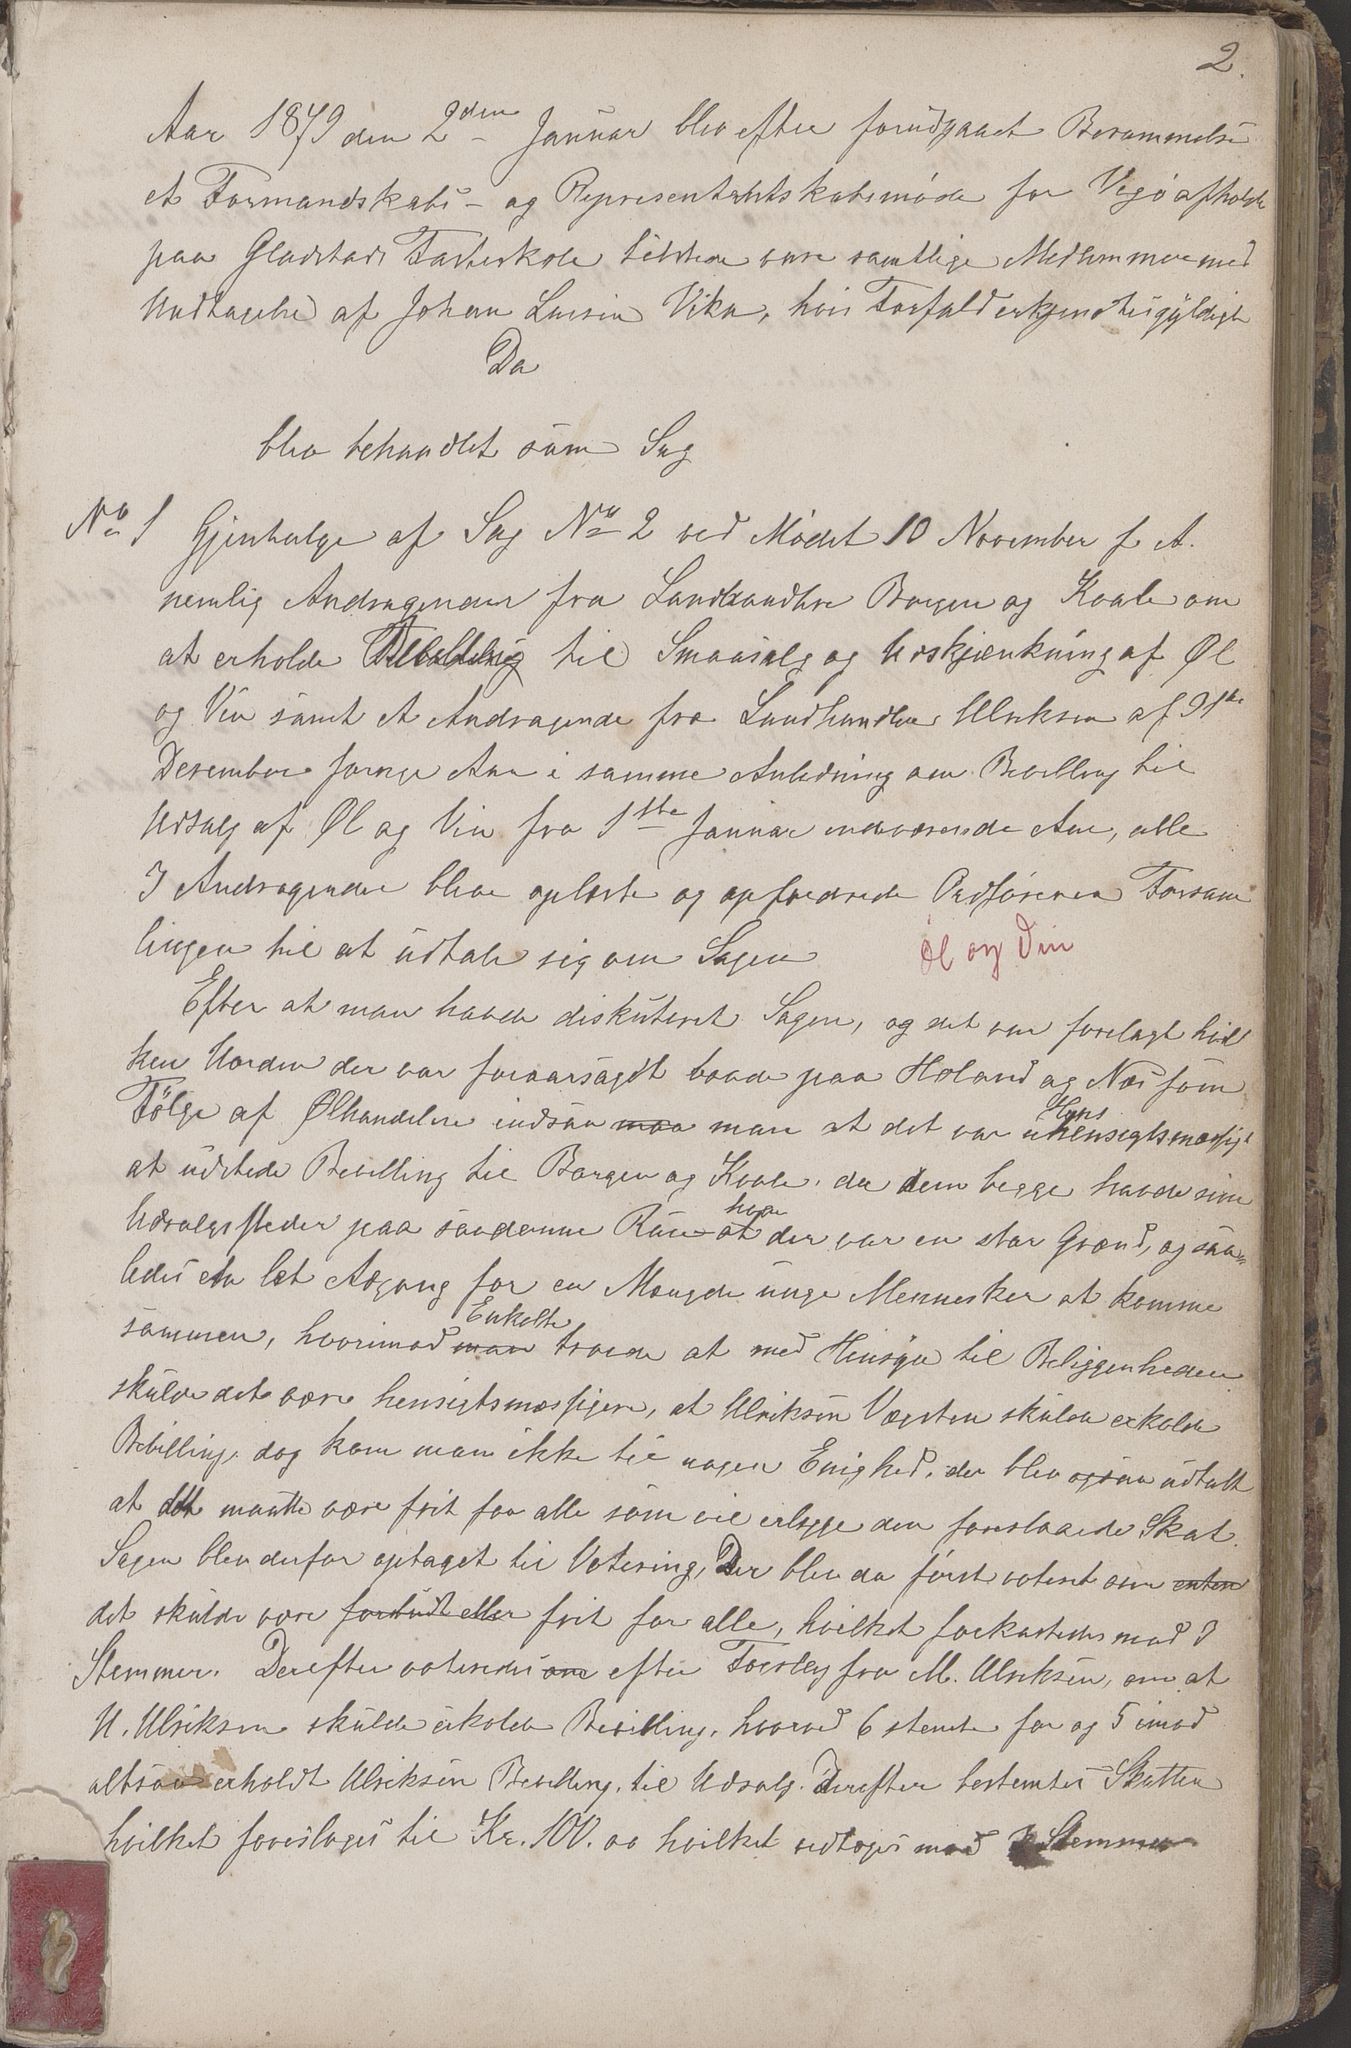 2.
Aar 1879 den 2den Januar blev efter forudgaaet Berammelse
et Formandskabs- og Representantskabsmøde for Vegø afholdt
paa Gladstad Fasteskole tilstede vare samtlige Medlemmer med
Undtagelse af Johan Larsen Vika, hvis Forfald erkjendtes gyldigt
Da
blev behandlet som Sag
No 1 Gjentatge af Sag No 2 ved Mødet 10 November f. A.
nemlig Andragender fra Landhandlere Borgen og Kvale om
at erholde til Smaasalg og Udskjænkning af Øl
og Vin samt et Andragende fra Landhandler Ulriksen af 31te
Desember forrige Aar i samme Anledning om Bevilling til
Udsalg af Øl og Vin fra 1ste Januar indeværende Aar, alle
3 Andragender bleve oplæste og opfordrede Ordføreren Forsam
lingen til at udtale sig om Sagen
Øl og Vin
Efter at man havde diskuteret Sagen, og det var forelagt hvil
ken Uorden der var foraarsaget baade paa Holand og Nes som
Følge af Ølhandelen indsaa maa man at det var uhensigtsmæssigt
Hens
at udstede Bevilling til Borgen og Kvale, da dem begge havde sine
Udsalgssteder paa saadanne Rum at der var en stor Grænd, og saa
hvor
ledes en let Adgang for en Mængde unge Mennesker at komme
sammen, hvorimod man troede at med Hensyn til Beliggenheden
Enkelte
skulde det være hensigtsmæssigere, at Ulriksen Vægsten skulde erholde
Bevilling, dog kom man ikke til nogen Enighed, der blev ogsaa udtalt
at det maatte være frit for alle som vil erlægge den foreslaaede Skat.
Sagen blev derfor optaget til Votering, Der blev da først voteret om enten
det skulde være forbudt eller frit for alle, hvilket forkastedes mod 3
Stemmer. Derefter voteredes om efter Forslag fra M. Ulriksen, om at
U. Ulriksen skulde erholde Bevilling, hvorved 6 stemte for og 5 imod
altsaa erholdt Ulriksen Bevilling til Udsalg. Derefter bestemtes Skatten
hvilket foreslages til Kr. 100.00 hvilket vedtoges mod Stemmer